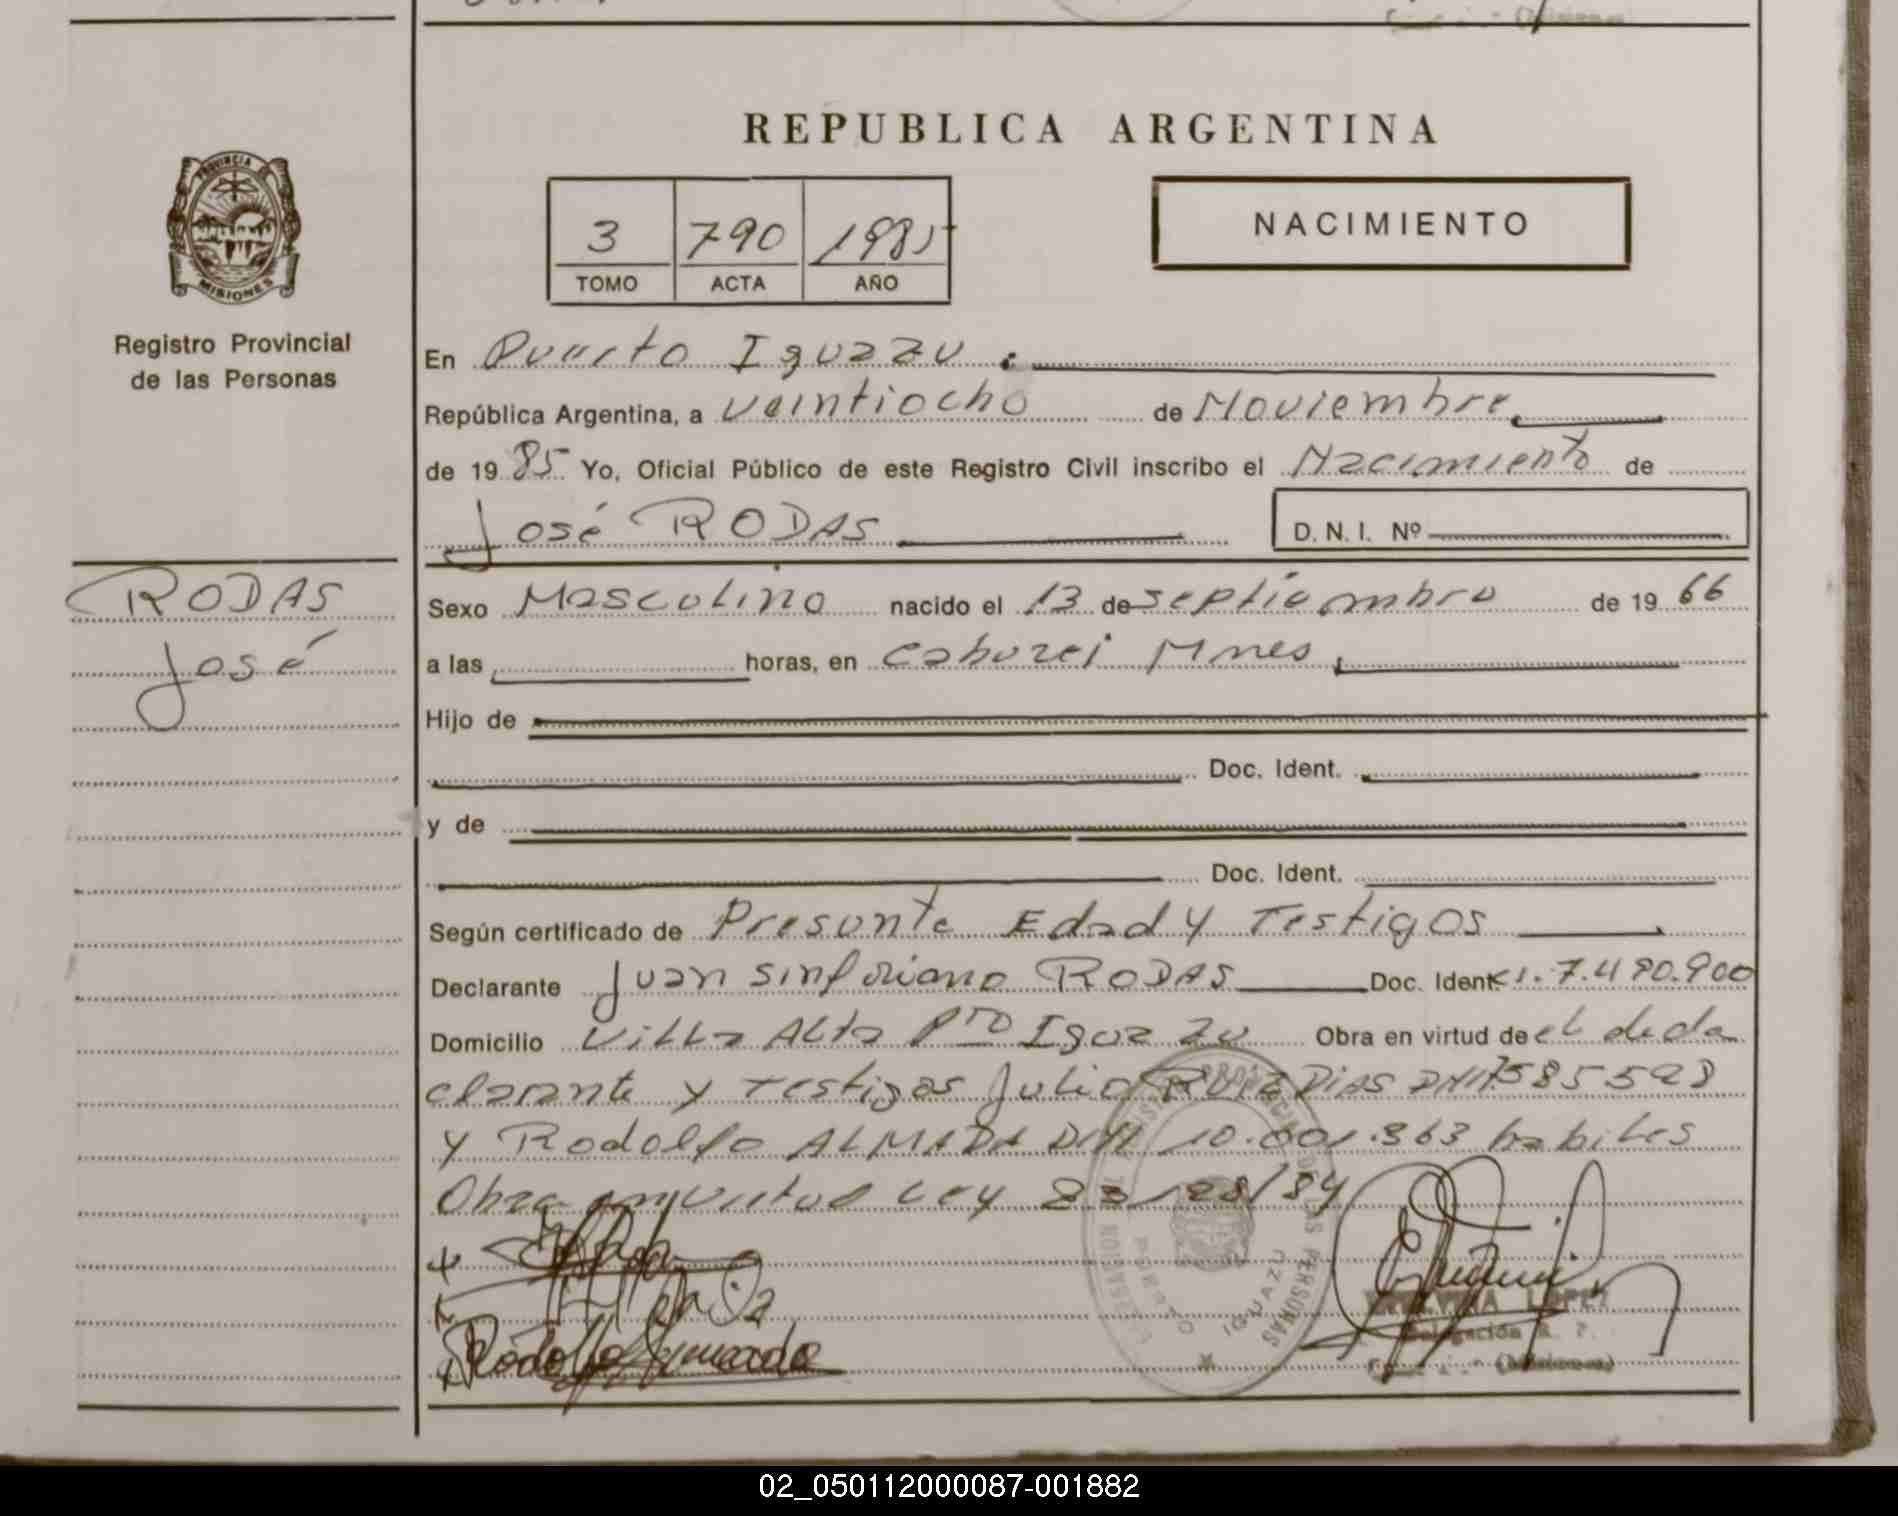 REPUBLICA ARGENTINA
PROVINCIA DE
MISIONES
Registro Provincial
de las Personas
3 790 1985
TOMO ACTA AÑO
NACIMIENTO
En Puerto Iguazu
República Argentina, a veintiocho de Noviembre
de 1985 Yo, Oficial Público de este Registro Civil inscribo el Nacimiento de
José RODAS D.N.I. Nº
RODAS
José
Sexo Masculino nacido el 13 de septiembre de 1966
a las horas, en Caburei Mnes
Hijo de
Doc. Ident.
y de
Doc. Ident.
Según certificado de Presunte Edad y Testigos
Declarante Juan Sinforiano RODAS Doc. Ident. 7.490.900
Domicilio Villa Alta Pto Iguazu Obra en virtud de el de da
clarante y Testigos Julio DIAS DNI 7585598
y Rodolfo ALMADA DNI 10.001.363 habiles
Obra en virtud Ley 23128/84
Rodolfo Almada
LOPEZ
Delegación
(Misiones)
02_050112000087-001882